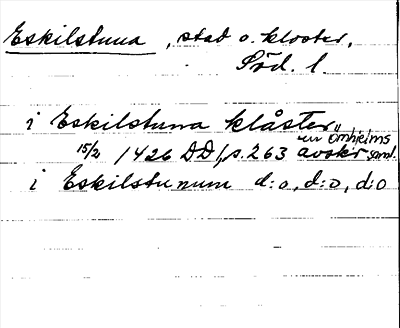 Eskilstuna, stad o. kloster,
Söd. l.
i Eskilstuna klåster"
15/2 1426 DD 1, s. 263 avskr ur Örnhjelms saml.
i Eskilstunum d:o, d:o, d:o